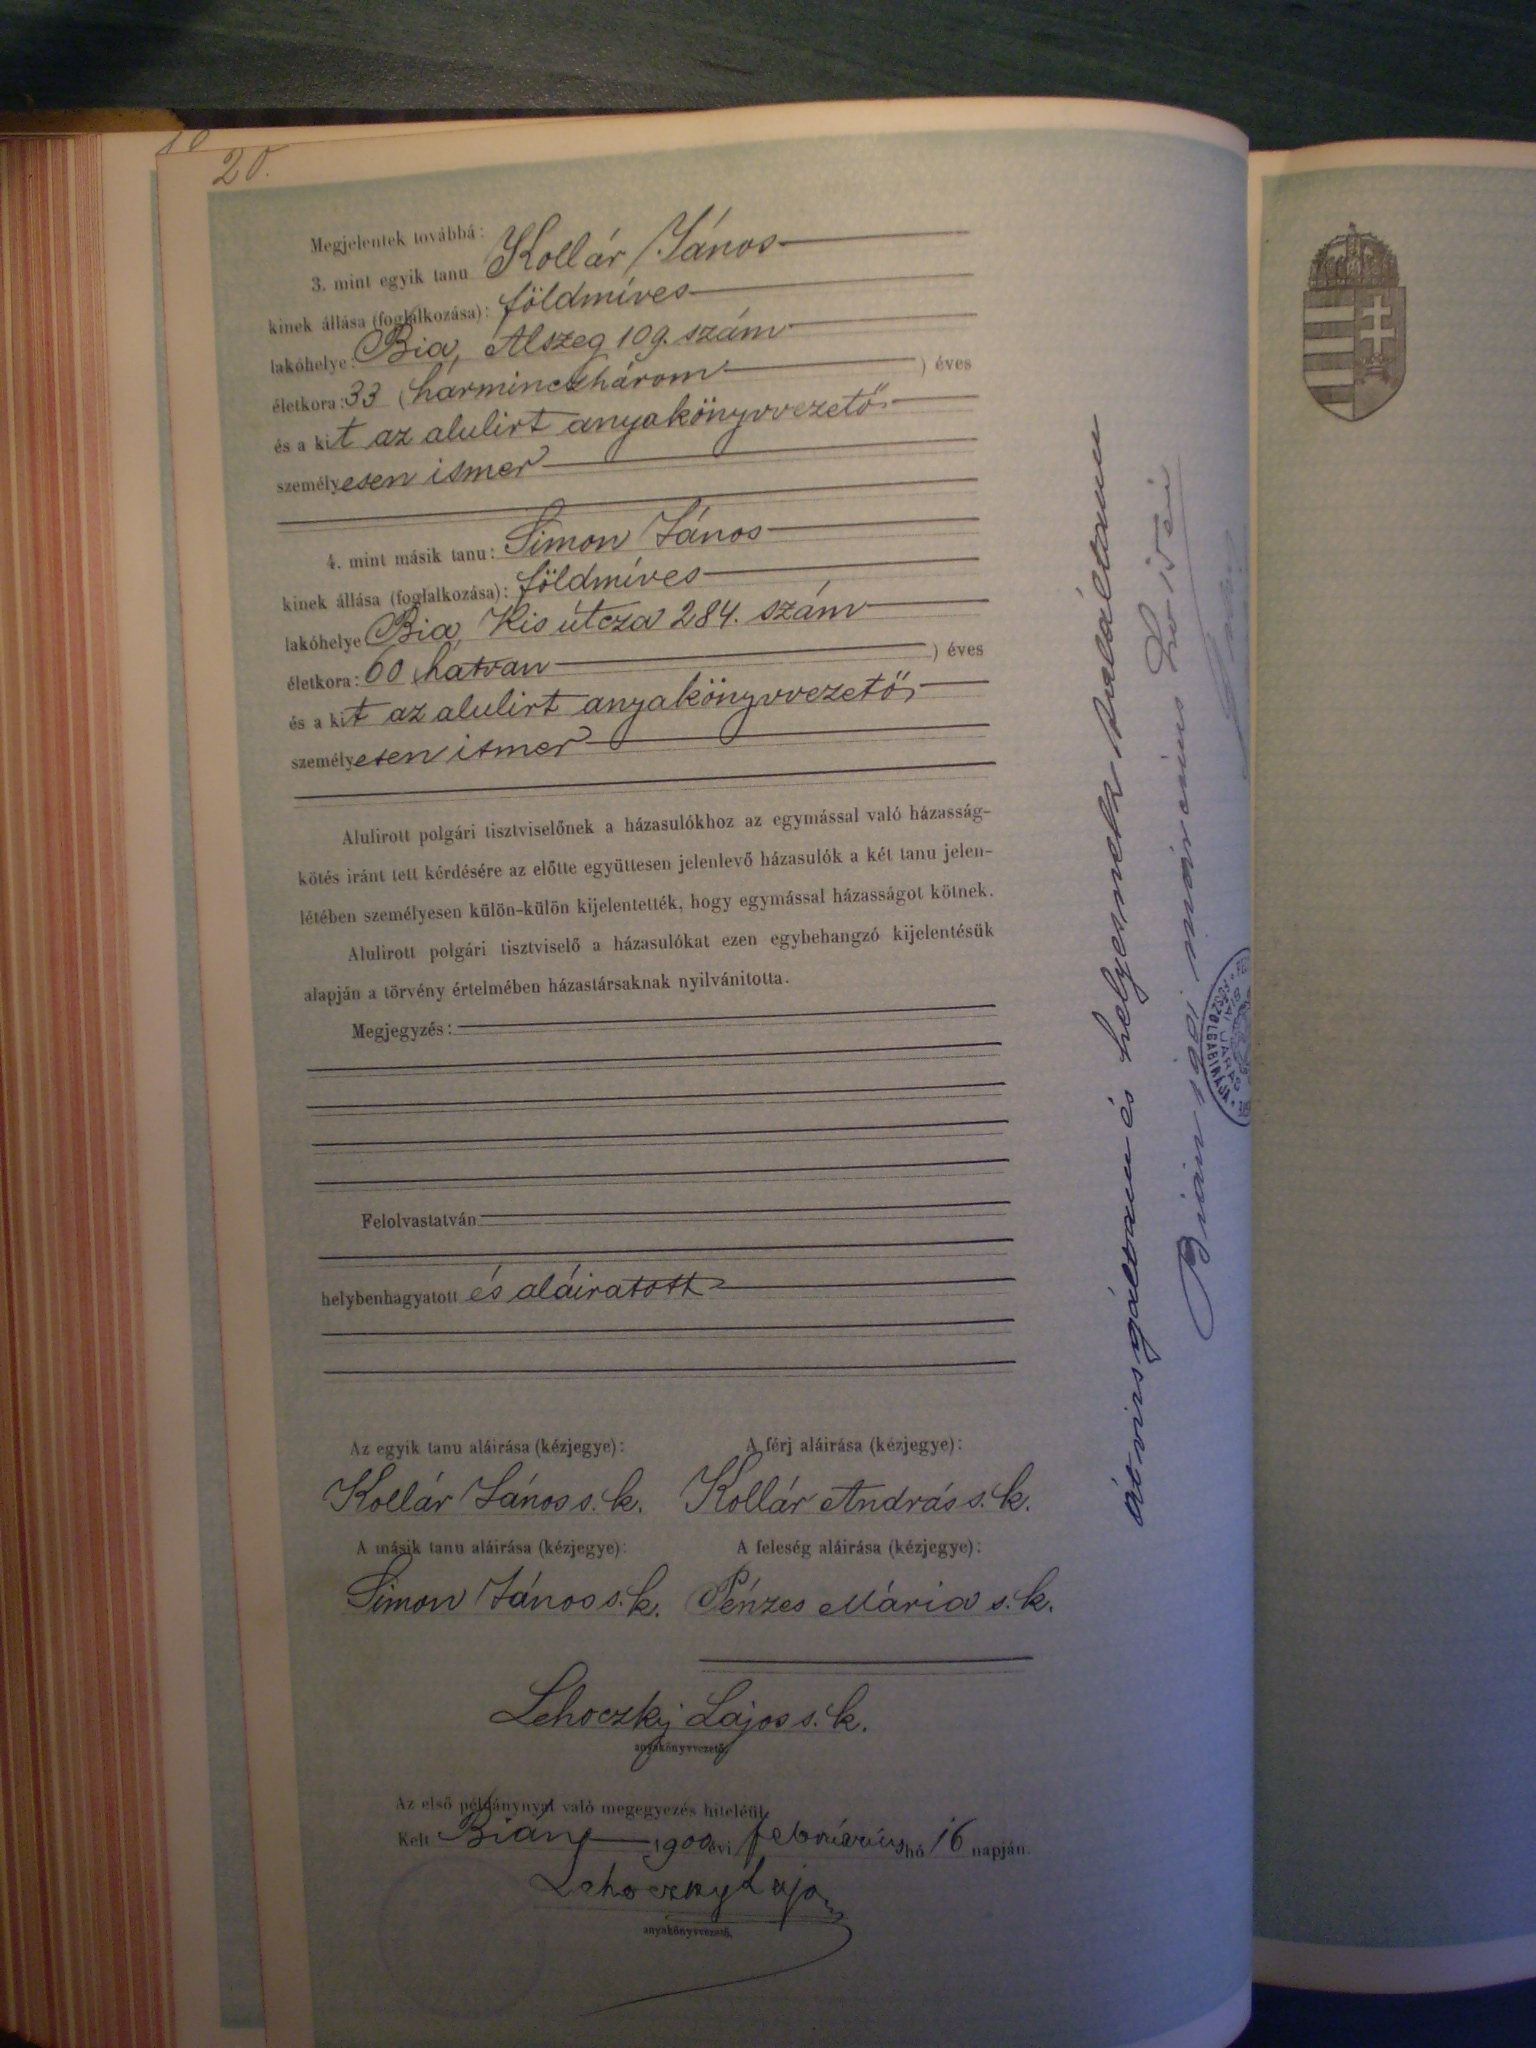 20.
Megjelentek továbbá:
3. mint egyik tanu Kollár János
kinek állása (foglalkozása): földmíves
lakóhelye: Bia, Alszeg 109. szám
életkora: 33 (harminczhárom ) éves
és a kit az alulirt anyakönyvvezető
személyesen ismer
4. mint másik tanu: Simon János
kinek állása (foglalkozása): földmíves
lakóhelye Bia, Kis útcza 284. szám
életkora: 60 (hatvan ) éves
és a kit az alulirt anyakönyvvezető
személyesen ismer
Alulirott polgári tisztviselőnek a házasulókhoz az egymással való házasság-
kötés iránt tett kérdésére az előtte együttesen jelenlevő házasulók a két tanu jelen-
létében személyesen külön-külön kijelentették, hogy egymással házasságot kötnek.
Alulirott polgári tisztviselő a házasulókat ezen egybehangzó kijelentésük
alapján a törvény értelmében házastársaknak nyilvánitotta.
Megjegyzés:
Felolvastatván
helybenhagyatott és aláiratott
Az egyik tanu aláirása (kézjegye): A férj aláirása (kézjegye):
Kollár János s. k. Kollár András s. k.
A másik tanu aláirása (kézjegye): A feleség aláirása (kézjegye):
Simon János s. k. Pénzes Mária s. k.
Lehoczky Lajos s. k.
anyakönyvvezető.
Az első példánynyal való megegyezés hiteléül.
Kelt Bián 1900 évi február hó 16 napján.
Lehoczky Lajos
anyakönyvvezető.
átvizsgáltam és helyesnek találtam
Bián 1901 márczius hó 15 én
BIAI JÁRÁS
FŐSZOLGABIRÁJA